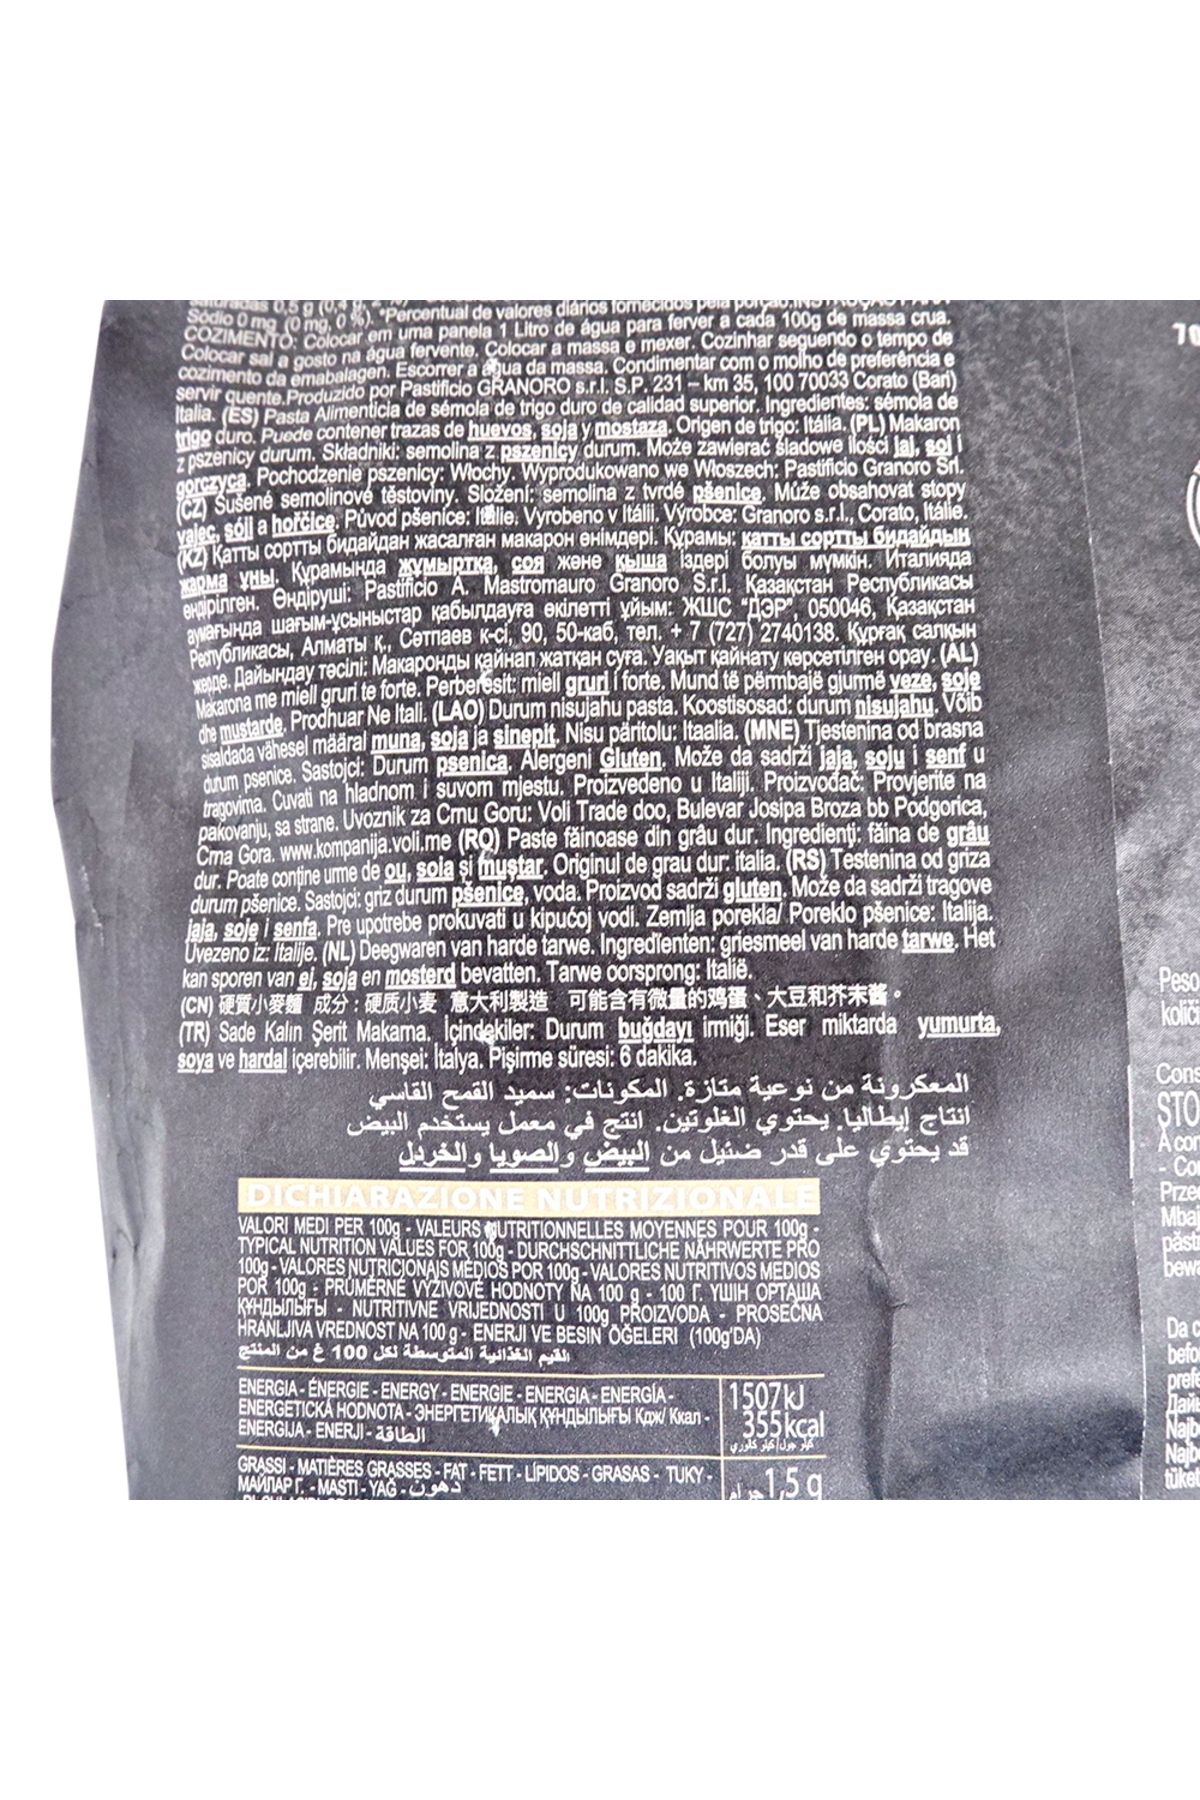 Sódio 0 mg (0 mg, 0 %). *Percentual de valores diários fornecidos pela porção.
COZIMENTO: Colocar em uma panela 1 Litro de água para ferver a cada 100g de massa crua.
Colocar sal a gosto na água fervente. Colocar a massa e mexer. Cozinhar seguendo o tempo de
cozimento da emabalagen. Escorrer a água da massa. Condimentar com o molho de preferência e
servir quente.Produzido por Pastificio GRANORO s.r.l. S.P. 231 – km 35, 100 70033 Corato (Bari)
Italia. (ES) Pasta Alimenticia de sémola de trigo duro de calidad superior. Ingredientes: sémola de
trigo duro. Puede contener trazas de huevos, soja y mostaza. Origen de trigo: Itália. (PL) Makaron
z pszenicy durum. Składniki: semolina z pszenicy durum. Może zawierać śladowe ilości jaj, soi i
gorczyca. Pochodzenie pszenicy: Włochy. Wyprodukowano we Włoszech: Pastificio Granoro Srl.
(CZ) Sušené semolinové těstoviny. Složení: semolina z tvrdé pšenice. Může obsahovat stopy
vajec, sóji a hořčice. Původ pšenice: Itálie. Vyrobeno v Itálii. Výrobce: Granoro s.r.l., Corato, Itálie.
(KZ) Қатты сортты бидайдан жасалған макарон өнімдері. Құрамы: қатты сортты бидайдың
жарма ұны. Құрамында жұмыртқа, соя және қыша іздері болуы мүмкін. Италияда
өндірілген. Өндіруші: Pastificio A. Mastromauro Granoro S.r.l. Қазақстан Республикасы
аумағында шағым-ұсыныстар қабылдауға өкілетті ұйым: ЖШС "ДЭР", 050046, Қазақстан
Республикасы, Алматы қ., Сәтпаев к-сі, 90, 50-каб, тел. + 7 (727) 2740138. Құрғақ салқын
жерде. Дайындау тәсілі: Макаронды қайнап жатқан суға. Уақыт қайнату көрсетілген орау. (AL)
Makarona me miell gruri te forte. Perberesit: miell gruri i forte. Mund të përmbajë gjurmë veze, soje
dhe mustarde. Prodhuar Ne Itali. (LAO) Durum nisujahu pasta. Koostisosad: durum nisujahu. Võib
sisaldada vähesel määral muna, soja ja sinepit. Nisu päritolu: Itaalia. (MNE) Tjestenina od brasna
durum psenice. Sastojci: Durum psenica. Alergeni Gluten. Može da sadrži jaja, soju i senf u
tragovima. Cuvati na hladnom i suvom mjestu. Proizvedeno u Italiji. Proizvođač: Provjerite na
pakovanju, sa strane. Uvoznik za Crnu Goru: Voli Trade doo, Bulevar Josipa Broza bb Podgorica,
Crna Gora. www.kompanija.voli.me (RO) Paste făinoase din grâu dur. Ingredienţi: făina de grâu
dur. Poate conţine urme de ou, soia şi muştar. Originul de grau dur: italia. (RS) Testenina od griza
durum pšenice. Sastojci: griz durum pšenice, voda. Proizvod sadrži gluten. Može da sadrži tragove
jaja, soje i senfa. Pre upotrebe prokuvati u kipućoj vodi. Zemlja porekla/ Poreklo pšenice: Italija.
Uvezeno iz: Italije. (NL) Deegwaren van harde tarwe. Ingredïenten: griesmeel van harde tarwe. Het
kan sporen van ei, soja en mosterd bevatten. Tarwe oorsprong: Italië.
(CN) 硬質小麥麵 成分：硬质小麦 意大利製造 可能含有微量的鸡蛋、大豆和芥末酱。
(TR) Sade Kalın Şerit Makarna. İçindekiler: Durum buğdayı irmiği. Eser miktarda yumurta,
soya ve hardal içerebilir. Menşei: İtalya. Pişirme süresi: 6 dakika.
المعكرونة من نوعية متازة. المكونات: سميد القمح القاسي
انتاج إيطاليا. يحتوي الغلوتين. انتج في معمل يستخدم البيض
قد يحتوي على قدر ضئيل من البيض والصويا والخردل
DICHIARAZIONE NUTRIZIONALE
VALORI MEDI PER 100g - VALEURS NUTRITIONNELLES MOYENNES POUR 100g -
TYPICAL NUTRITION VALUES FOR 100g - DURCHSCHNITTLICHE NÄHRWERTE PRO
100g - VALORES NUTRICIONAIS MÉDIOS POR 100g - VALORES NUTRITIVOS MEDIOS
POR 100g - PRŮMĚRNÉ VÝŽIVOVÉ HODNOTY NA 100 g - 100 Г. ҮШІН ОРТАША
ҚҰНДЫЛЫҒЫ - NUTRITIVNE VRIJEDNOSTI U 100g PROIZVODA - PROSEČNA
HRANLJIVA VREDNOST NA 100 g - ENERJİ VE BESİN ÖĞELERİ (100g'DA)
القيم الغذائية المتوسطة لكل 100 غ من المنتج
ENERGIA - ÉNERGIE - ENERGY - ENERGIE - ENERGIA - ENERGÍA -
ENERGETICKÁ HODNOTA - ЭНЕРГЕТИКАЛЫҚ ҚҰНДЫЛЫҒЫ Кдж/ Ккал -
ENERGIJA - ENERJİ - الطاقة
1507kJ
355kcal
كيلو جول/كيلو كالوري
GRASSI - MATIÈRES GRASSES - FAT - FETT - LÍPIDOS - GRASAS - TUKY -
МАЙЛАР Г. - MASTI - YAĞ - دهون
1,5 g جرام
Peso
STO